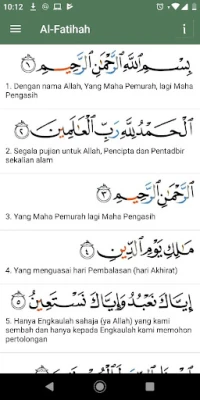 10:12
Al-Fatihah
بِسْمِ ٱللَّهِ ٱلرَّحْمَٰنِ ٱلرَّحِيمِ ١
1. Dengan nama Allah, Yang Maha Pemurah, lagi Maha
Pengasih
ٱلْحَمْدُ لِلَّهِ رَبِّ ٱلْعَالَمِينَ ٢
2. Segala pujian untuk Allah, Pencipta dan Pentadbir
sekalian alam
ٱلرَّحْمَٰنِ ٱلرَّحِيمِ ٣
3. Yang Maha Pemurah lagi Maha Pengasih
مَالِكِ يَوْمِ ٱلدِّينِ ٤
4. Yang menguasai hari Pembalasan (hari Akhirat)
إِيَّاكَ نَعْبُدُ وَإِيَّاكَ نَسْتَعِينُ ٥
5. Hanya Engkaulah sahaja (ya Allah) yang kami
sembah dan hanya kepada Engkaulah kami memohon
pertolongan